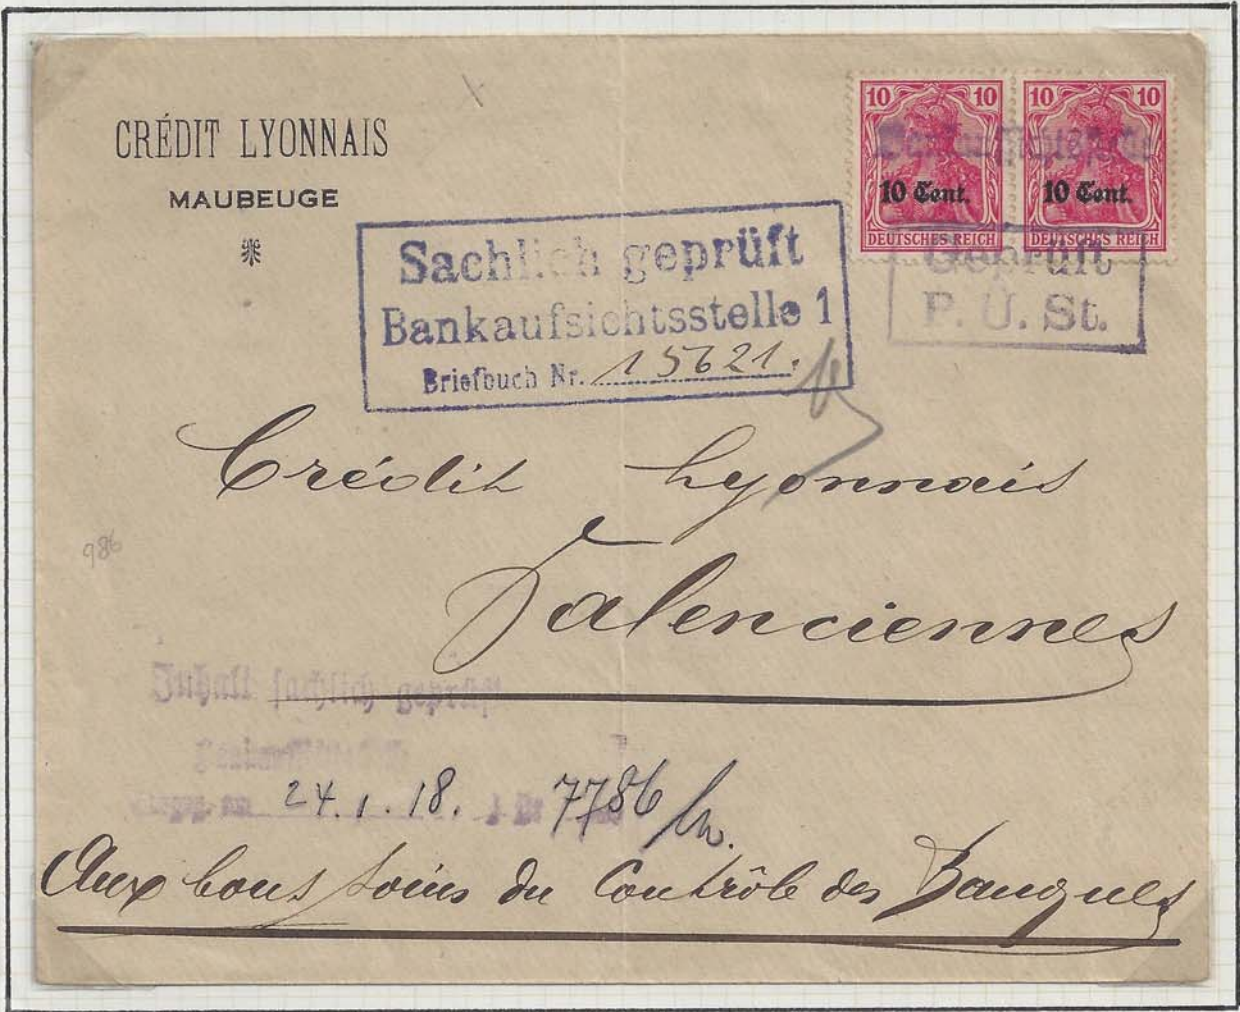 CRÉDIT LYONNAIS
MAUBEUGE
10 10 10 10
10 Cent. 10 Cent.
DEUTSCHES REICH DEUTSCHES REICH
Sachlich geprüft
Bankaufsichtsstelle 1
Briefbuch Nr. 15621.
Geprüft
P. Ü. St.
Crédit Lyonnais
Valenciennes
986
Inhalt sachlich geprüft
24.1.18. 7786
Aux bons soins du Contrôle des Banques